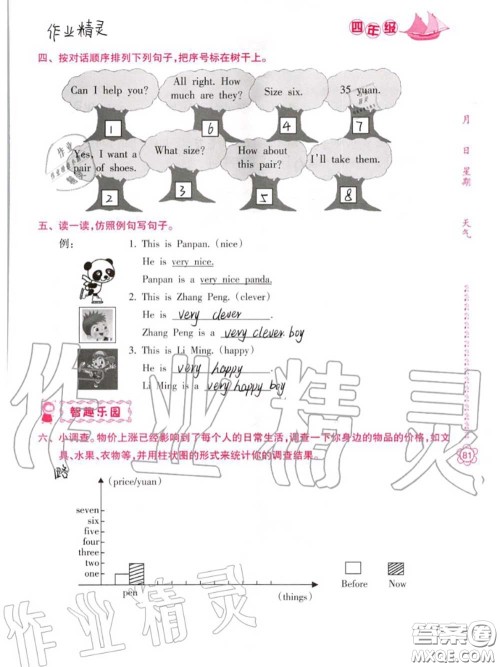 作业精灵
四年级
四、按对话顺序排列下列句子,把序号标在树干上。
Can I help you?
All right. How much are they?
Size six.
35 yuan.
1
6
4
7
Yes, I want a pair of shoes.
What size?
How about this pair?
I'll take them.
2
3
5
8
月
日
星期
天气
五、读一读,仿照例句写句子。
例:
1. This is Panpan. (nice)
He is very nice.
Panpan is a very nice panda.
2. This is Zhang Peng. (clever)
He is very clever.
Zhang Peng is a very clever boy
3. This is Li Ming. (happy)
He is very happy
Li Ming is a very happy boy.
智趣乐园
六、小调查。物价上涨已经影响到了每个人的日常生活,调查一下你身边的物品的价格,如文
具、水果、衣物等,并用柱状图的形式来统计你的调查结果。
81
略
(price/yuan)
seven
six
five
four
three
two
one
pen
(things)
Before
Now
作业精灵
作业精灵
答案圈
MXQE.COM